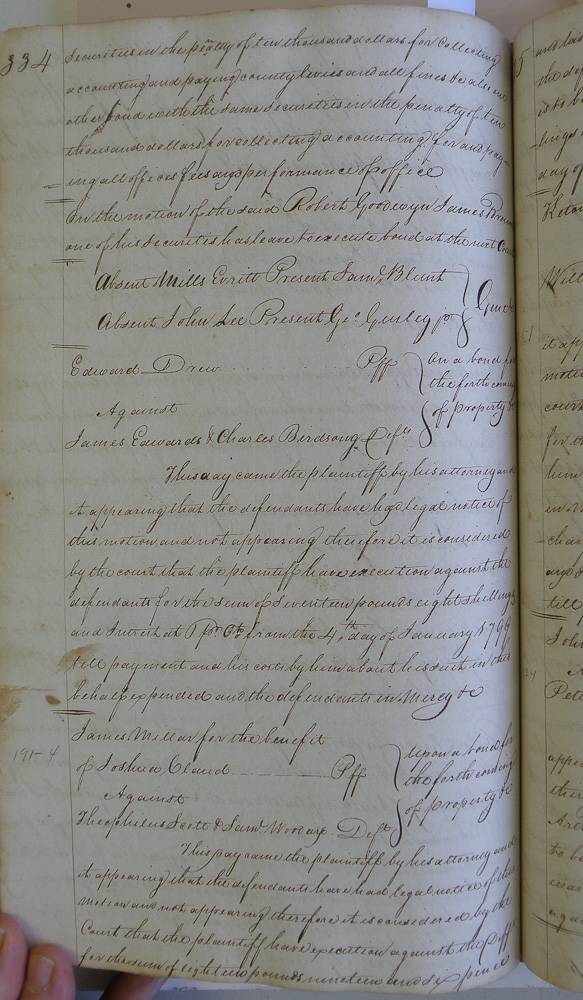 334
Securities in the penalty of ten thousand dollars for Collecting
accounting and paying county levies and all fines &c also one
other bond with the same Secureties in the penalty of ten
thousand dollars for collecting accounting for and pay-
ing all offices fees and performance of office
On the motion of the said Robert Goodwyn James
one of his Securities has leave to execute bond at the next Court
Absent Mills Evritt Present Saml. Blunt
Absent John Lee Present Geo. Gurley jr
Gent
Edward Drew Plff
Against
James Edwards & Charles Birdsong Defts
On a bond for
the forth coming
of property &c
This day came the plaintiff by his attorney and
it appearing that the defendants have had legal notice of
this motion and not appearing therefore it is considered
by the court that the plaintiff have execution against the
defendants for the sum of Seventeen pounds eight Shillings
and Interest at Pr Ct. from the 4th day of January 1799
till payment and his costs by him about his suit in this
behalf expended and the defendants in Mercy &c
191-4
James Millar for the benefit
of Joshua Claud Plff
Against
Theophilus Scott & Saml. Defts
Upon a bond for
the forth coming
of property &c
This day came the plaintiff by his attorney and
it appearing that the defendants have had legal notice of this
motion and not appearing therefore it is considered by the
Court that the plaintiff have execution against the Defts
for the sum of eighteen pounds nineteen and six pence